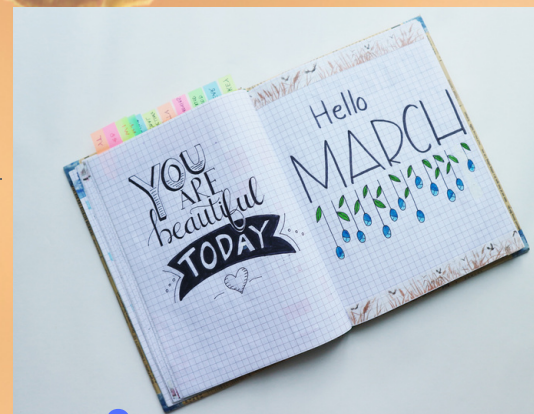 YOU
ARE
beautiful
TODAY
Hello
MARCH